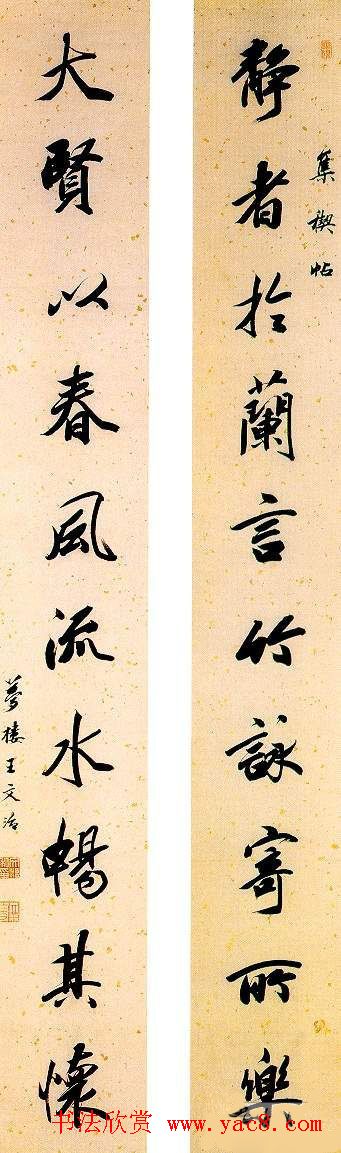 集禊帖
靜者於蘭言竹詠寄所樂
大賢以春風流水暢其懷
夢樓王文治
书法欣赏 www.yac8.com